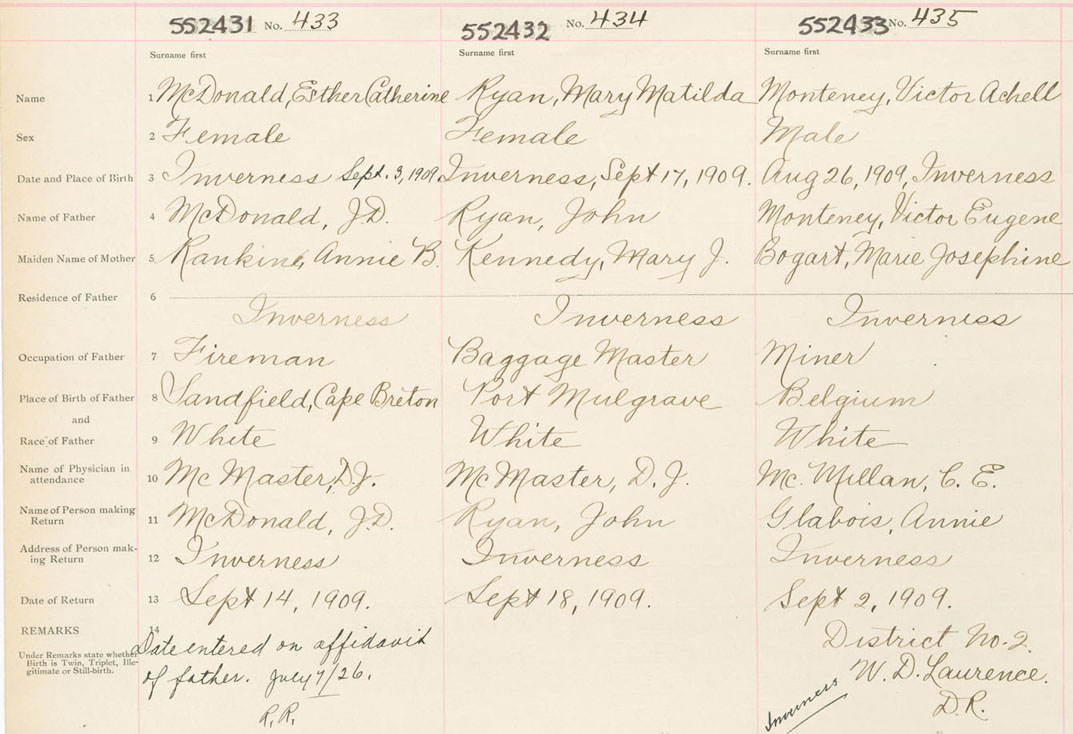 552431 No. 433 552432 No. 434 552433 No. 435
Surname first Surname first Surname first
Name 1 McDonald, Esther Catherine Ryan, Mary Matilda Monteney, Victor Achell
Sex 2 Female Female Male
Date and Place of Birth 3 Inverness Sept. 3, 1909. Inverness, Sept 17, 1909. Aug 26, 1909, Inverness
Name of Father 4 McDonald, J.D. Ryan, John Monteney, Victor Eugene
Maiden Name of Mother 5 Rankine, Annie B. Kennedy, Mary J. Bogart, Marie Josephine
Residence of Father 6
Inverness Inverness Inverness
Occupation of Father 7 Fireman Baggage Master Miner
Place of Birth of Father 8 Sandfield, Cape Breton Port Mulgrave Belgium
and
Race of Father 9 White White White
Name of Physician in
attendance 10 McMaster, D.J. McMaster, D. J. Mc. Millan, C. E.
Name of Person making
Return 11 McDonald, J.D. Ryan, John Glabois, Annie
Address of Person mak-
ing Return 12 Inverness Inverness Inverness
Date of Return 13 Sept 14, 1909. Sept 18, 1909. Sept 2, 1909.
REMARKS 14
Under Remarks state whether
Birth is Twin, Triplet, Ille-
gitimate or Still-birth.
Date entered on affidavit
of father. July 7/26.
R.R.
District No. 2.
W. D. Laurence.
D.R.
Inverness